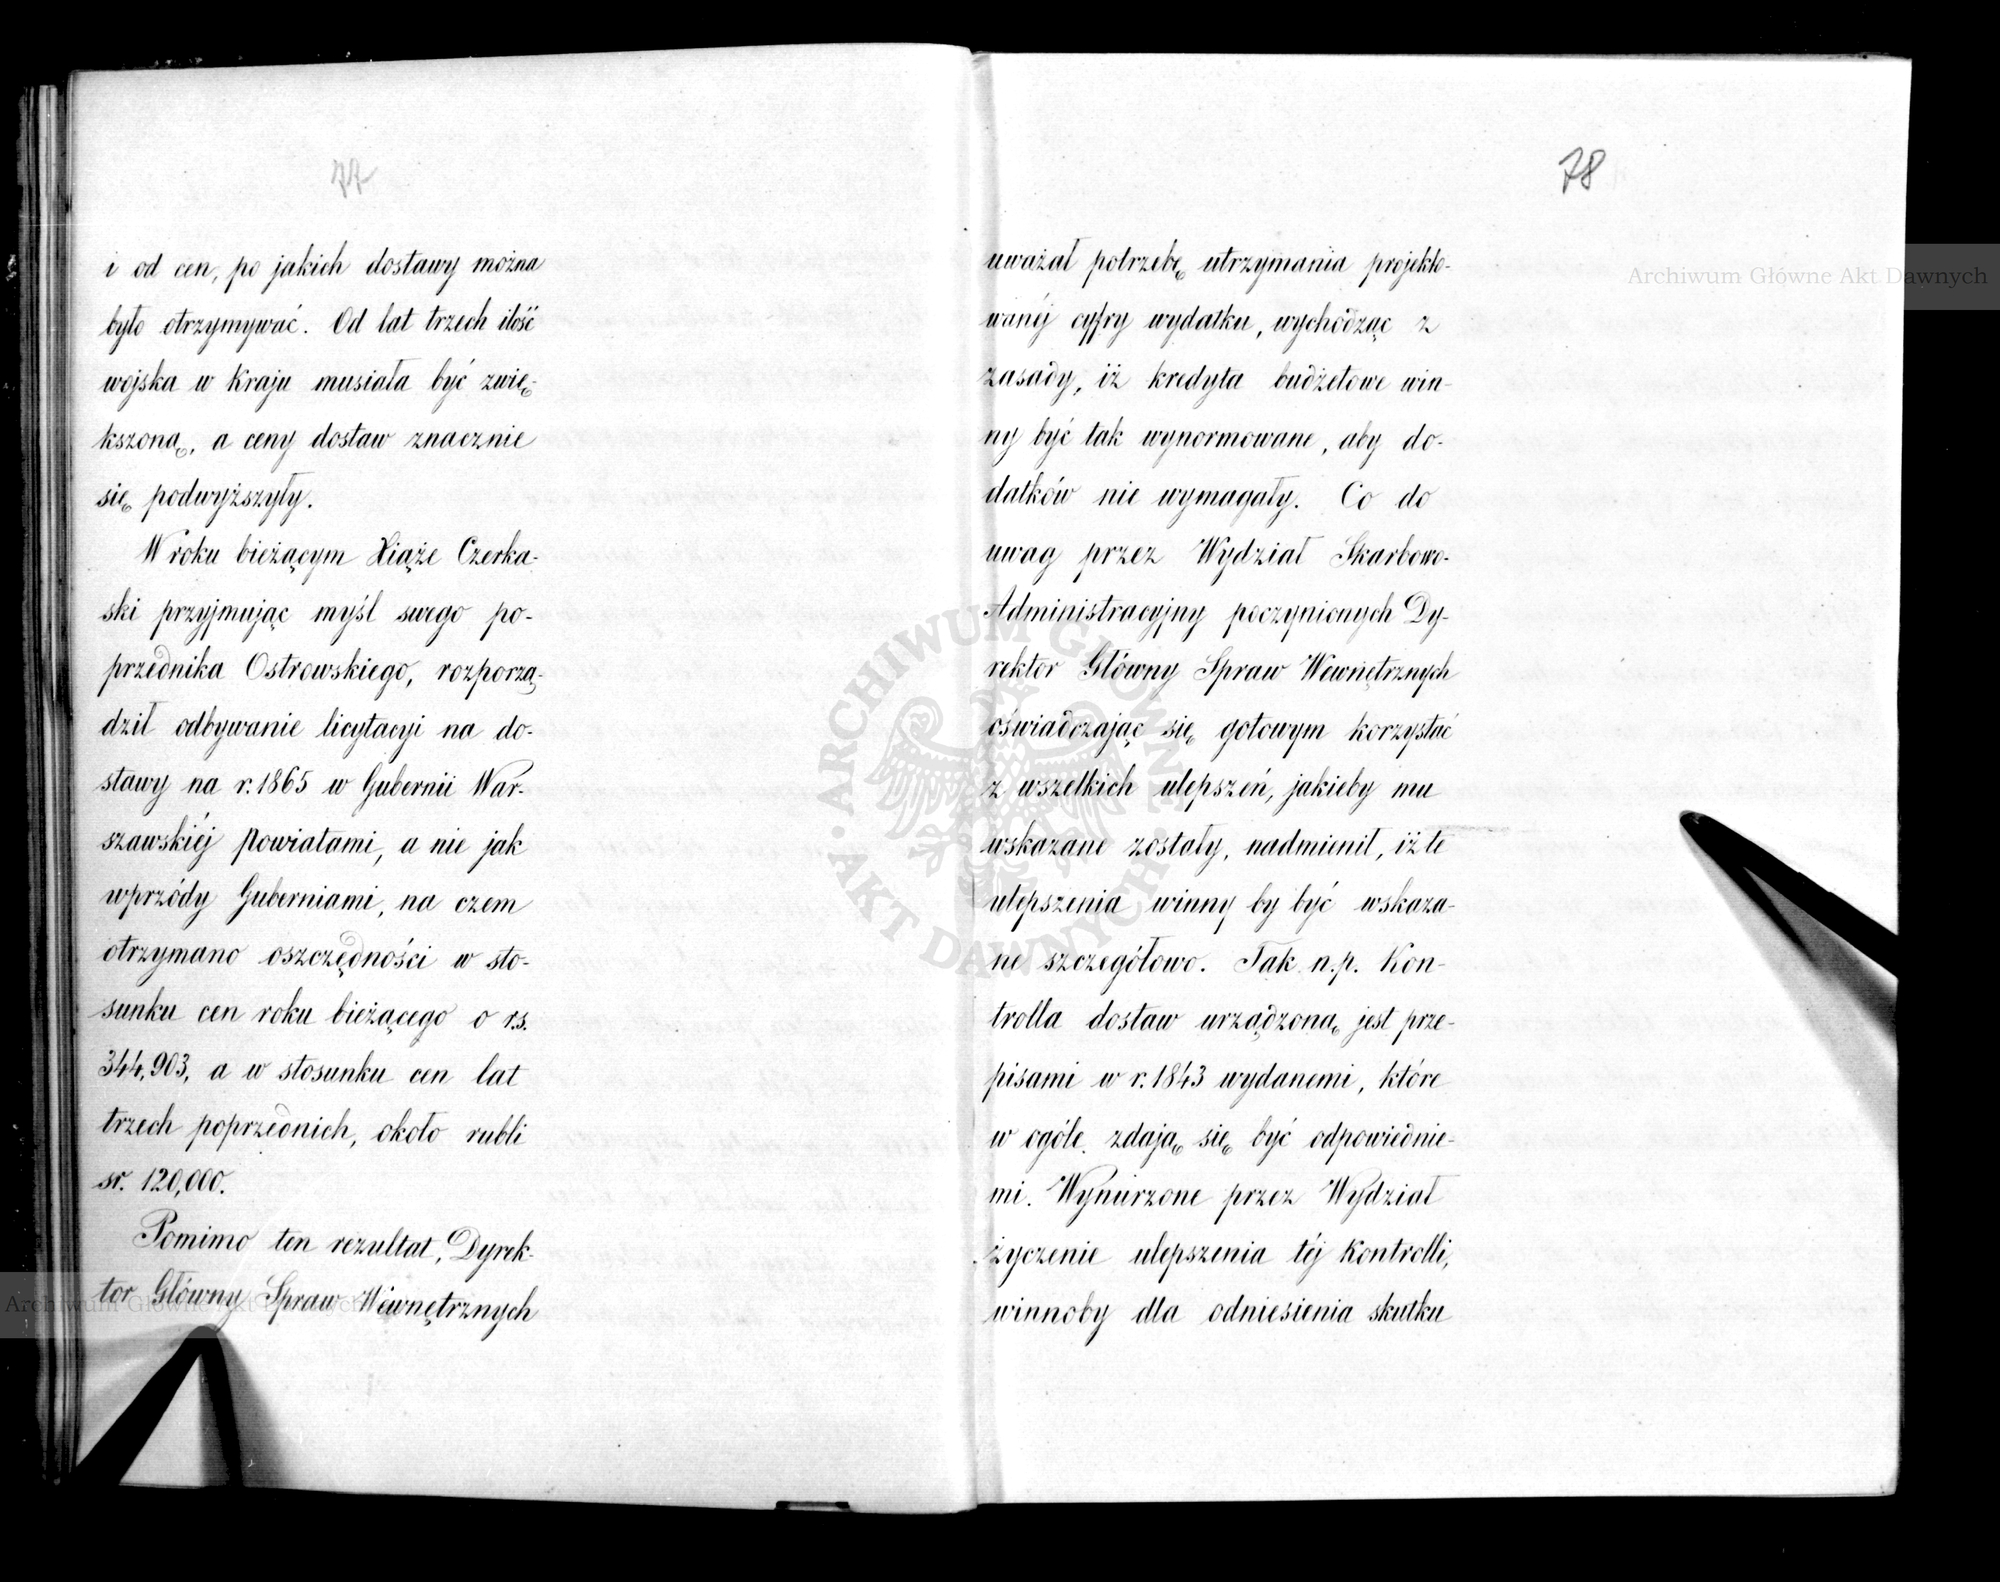 77
i od cen, po jakich dostawy można
było otrzymywać. Od lat trzech ilość
wojska w Kraju musiała być zwię-
kszoną, a ceny dostaw znacznie
się podwyższyły.
W roku bieżącym Xiąże Czerka-
ski przyjmując myśl swego po-
przednika Ostrowskiego, rozporzą-
dził odbywanie licytacyi na do-
stawy na r. 1865 w Gubernii War-
szawskiéj Powiatami, a nie jak
wprzódy Guberniami, na czem
otrzymano oszczędności w sto-
sunku cen roku bieżącego o rs.
344,903, a w stosunku cen lat
trzech poprzednich, około rubli
sr. 120,000.
Pomimo ten rezultat, Dyrek-
tor Główny Spraw Wewnętrznych
78
uważał potrzebę utrzymania projekto-
wanéj cyfry wydatku, wychodząc z
zasady, iż kredyta budżetowe win-
ny być tak wynormowane, aby do-
datków nie wymagały. Co do
uwag przez Wydział Skarbowo-
Administracyjny poczynionych Dy-
rektor Główny Spraw Wewnętrznych
oświadczając się gotowym korzystać
z wszelkich ulepszeń, jakieby mu
wskazane zostały, nadmienił, iż te
ulepszenia winny by być wskaza-
ne szczegółowo. Tak n.p. Kon-
trolla dostaw urządzoną jest prze-
pisami w r. 1843 wydanemi, które
w ogóle zdają się być odpowiednie-
mi. Wynurzone przez Wydział
życzenie ulepszenia téj Kontrolli,
winnoby dla odniesienia skutku
Archiwum Główne Akt Dawnych
ARCHIWUM GŁÓWNE AKT DAWNYCH
Archiwum Główne Akt Dawnych